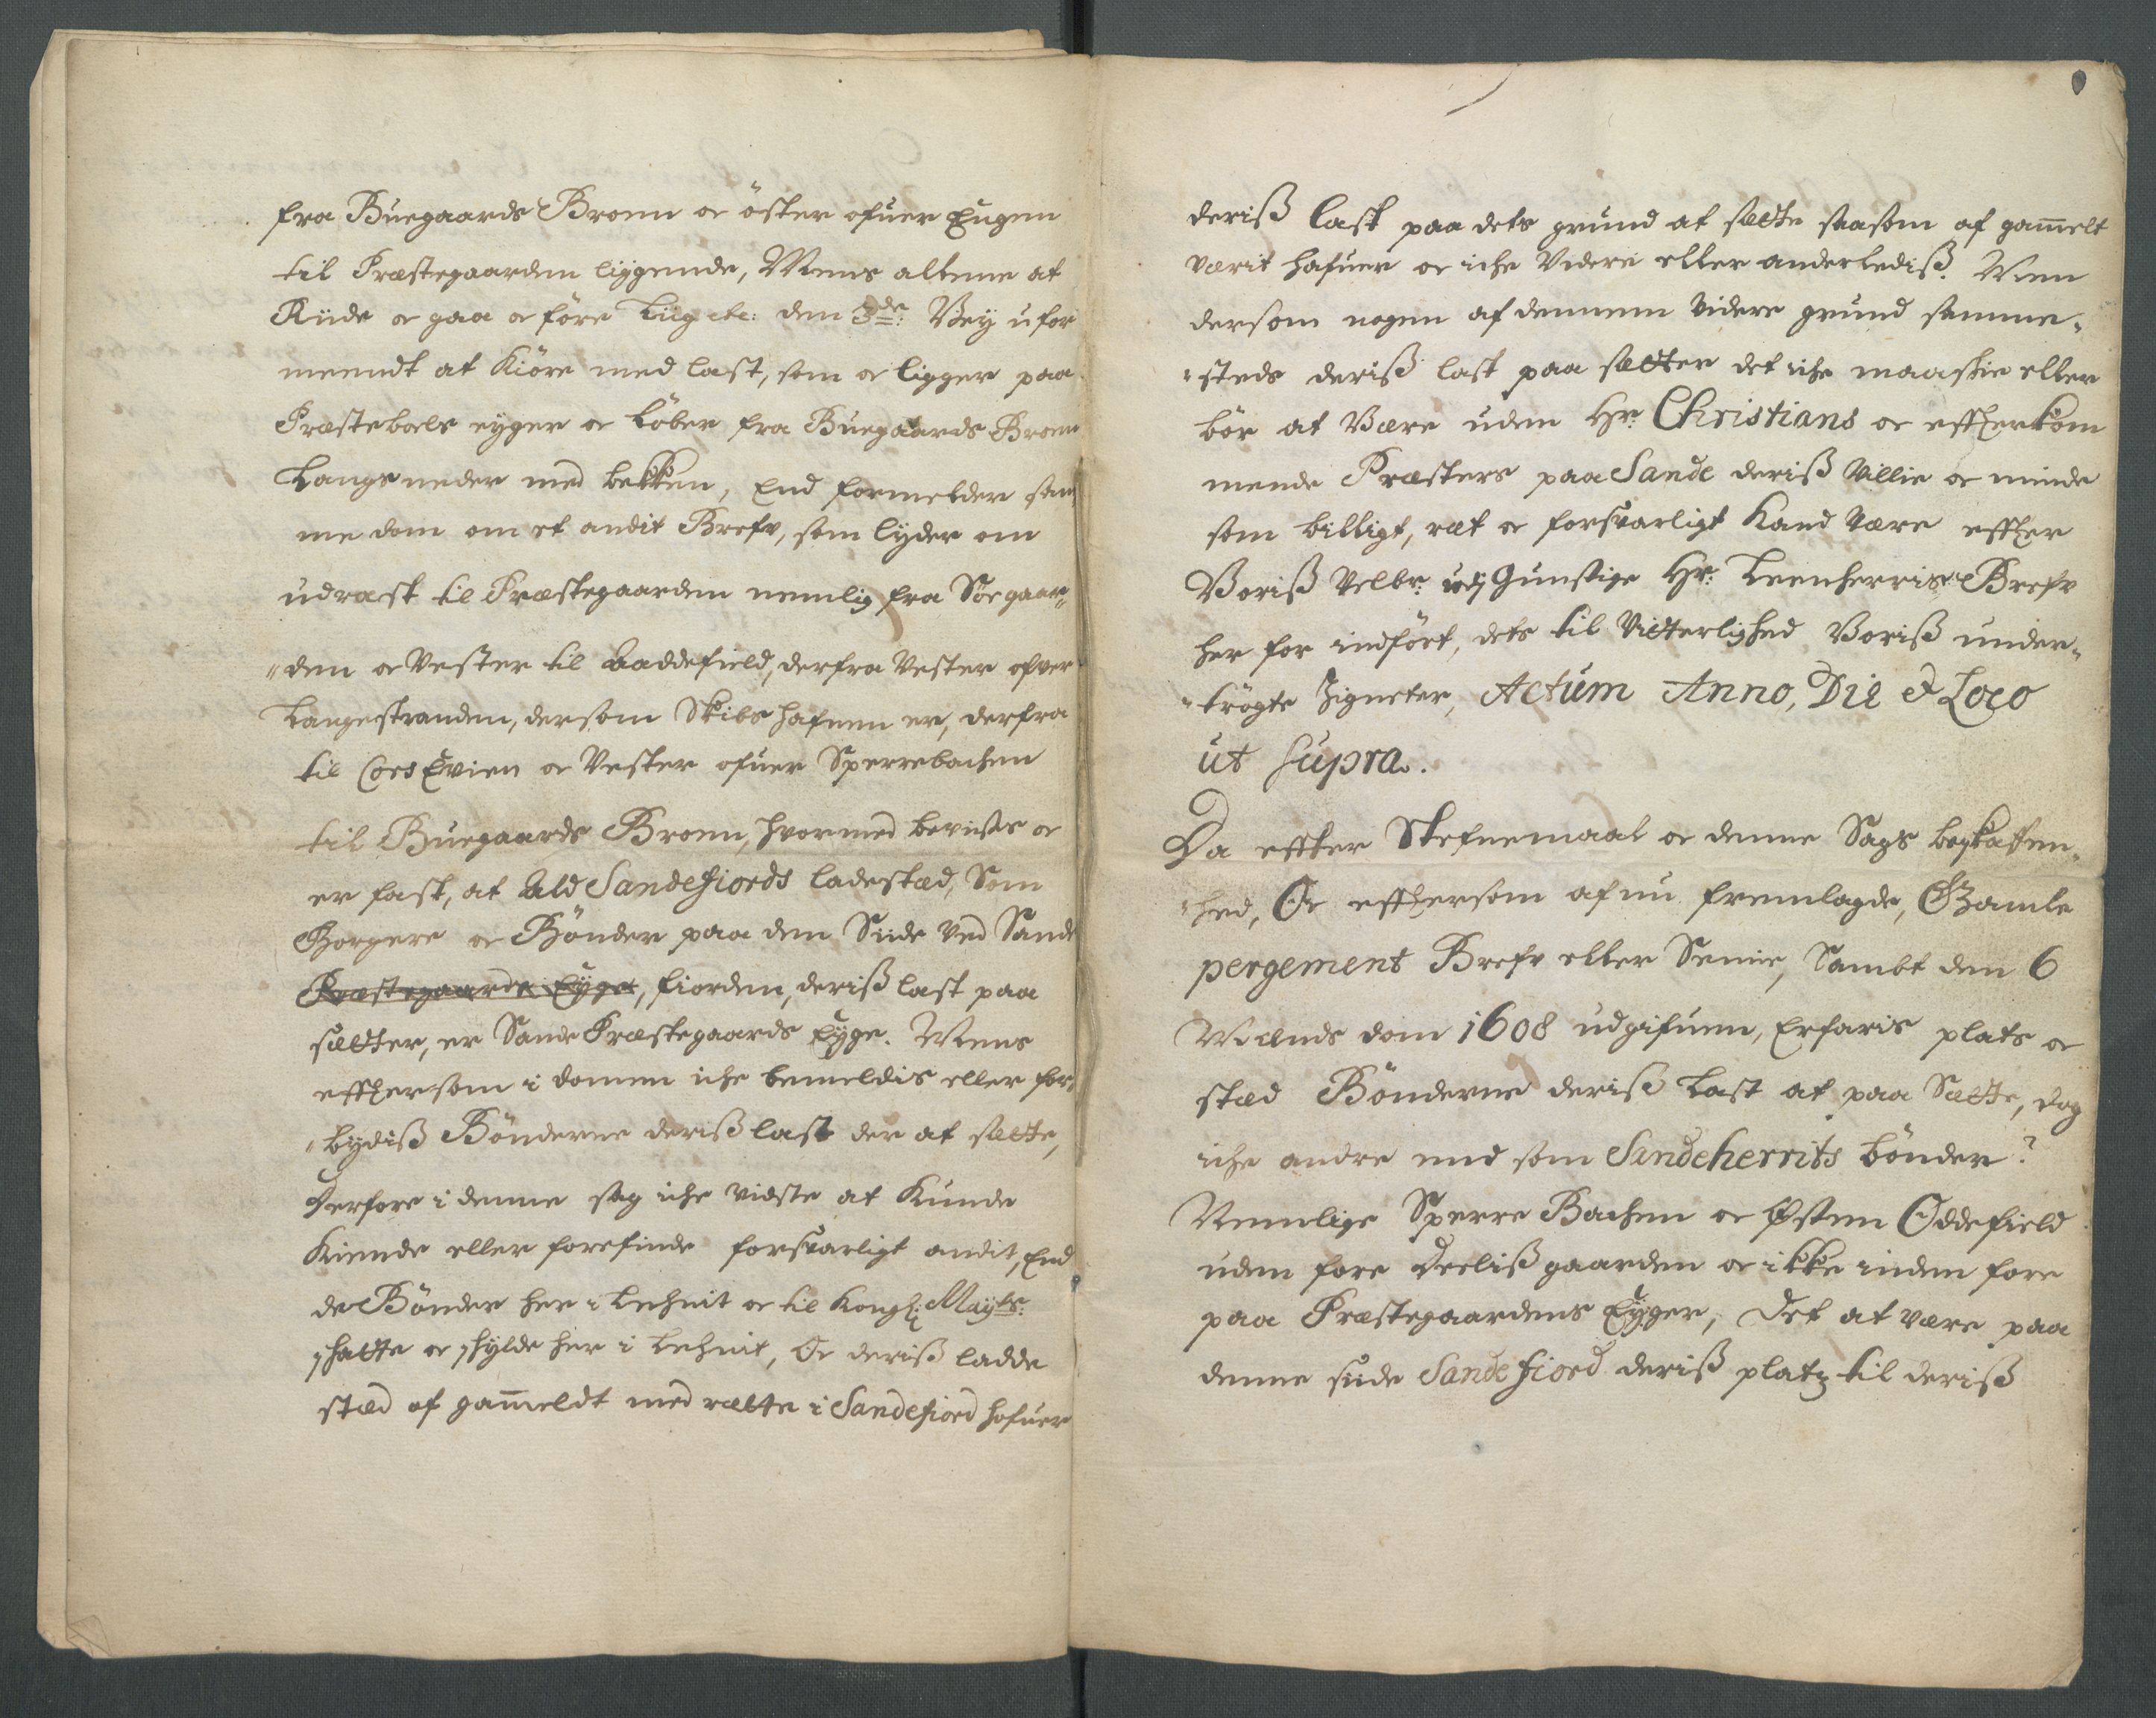 fra Buegaards Broen oc öster ofuer Eugen
til Præstegaarden liggende, Mens allene at
Riide oc gaa oc före Liig etc: den 3de: Veÿ ufor
meendt at Kiöre med last, som oc ligger paa
Præstebols eyger oc Löber fra Buegaards Broen
Langs neder med bekken, End formelder sam
me dom om et andit Brefv, som lyder om
udrast til Præstegaarden nemlig fra Söegaar„
„den oc Vester til Baddefield, derfra Vester ofver
Langestranden, dersom Skibs hafnen er, derfra
til Cors Evien oc Vester ofuer Sperrebachen
til Buegaards Broen, hvormed bevistes oc
er fast, at Ald Sandefiords ladestæd, Som
Borgere oc Bönder paa den Siide Ved Sande
Præstegaards Eyger, fiorden, deriß last paa
sætter, er Sande Præstegaards Eyge. Mens
effter som i domen iche bemeldis eller for„
„bydiß Bönderne deriß last der at sætte,
Derfore i denne sag iche vidste at Kunde
Kiende eller forefinde forsvarligt andit, End
de Bönder her i Lehnit oc til Kongl: Mayts:
skatte oc skylde her i Lehnit, Oc deriß ladde
stæd af gam̄eldt med rætte i Sandefiord hafuer
deriß last paa dets grund at sætte saasom af gam̄elt
værit hafuer oc iche Videre eller anderlediß. Men
dersom nogen af dennem videre grund samme„
„steds deriß last paa sætter det iche maaskie eller
bör at Være uden Hr: Christians oc effterkom
mende Præsters paa Sande deriß Villie oc minde
som billigt, ræt oc forsvarligt Kand være effter
Voriß Velbr: Gunstige Hr: Leenherris Brefv
her for indfört, dets til Vitterlighed Voriß under„
„trögte Zigneter, Actum Anno, Die & Loco
ut supra.
Da effter Stefnemaal oc denne Sags beskaffen„
„hed, Oc efftersom af nu fremlagde, Gamle
pergements Brefv eller Senie, Sambt den 6
Mænds dom 1608 udgifuen, Erfaris plats oc
stæd Bönderne deriß Last at paa Sætte, dog
iche andre end som Sandeherrits bönder?
Nemlige Sperre Bachen oc Østen Oddefield
uden fore Deeliß gaarden oc ikke inden fore
paa Præstegaardens Eyger, Det at være paa
denne siide Sandefiord deriß platz til deriß